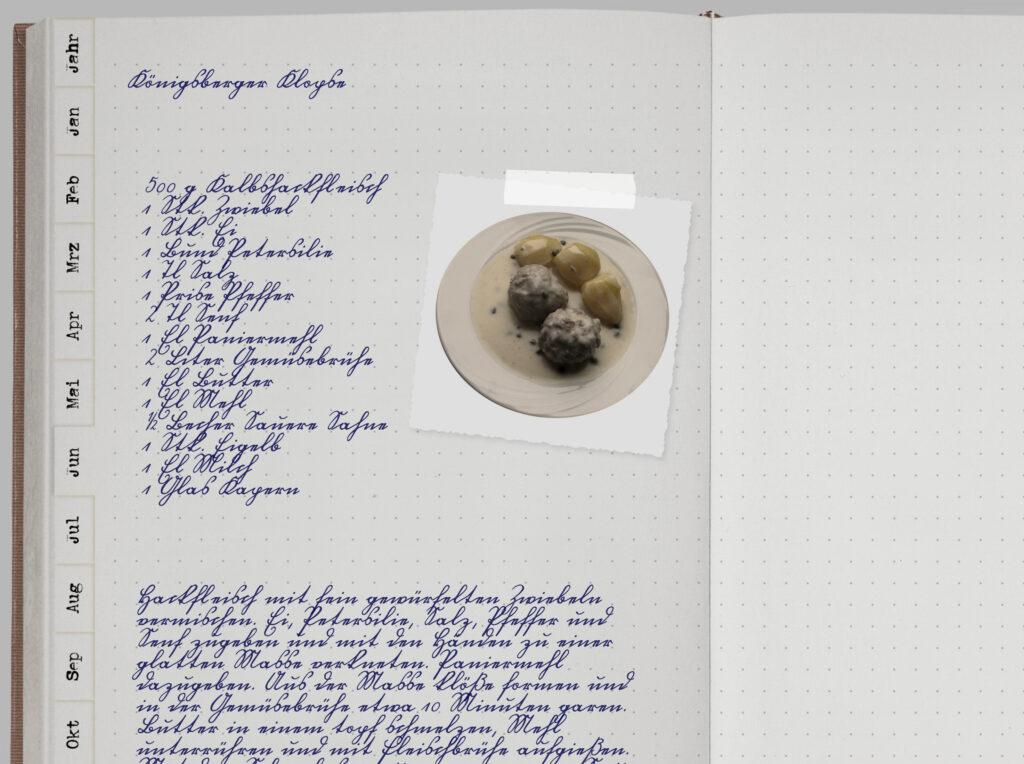 Jahr
Jan
Feb
Mrz
Apr
Mai
Jun
Jul
Aug
Sep
Okt
Königsberger Klopse
500 g Kalbshackfleisch
1 Stk. Zwiebel
1 Stk. Ei
1 Bund Petersilie
1 Tl Salz
1 Prise Pfeffer
2 Tl Senf
1 El Paniermehl
2 Liter Gemüsebrühe
1 El Butter
1 El Mehl
1/2 Becher Sauere Sahne
1 Stk. Eigelb
1 El Milch
1 Glas Kapern
Hackfleisch mit fein gewürfelten Zwiebeln
vermischen. Ei, Petersilie, Salz, Pfeffer und
Senf zugeben und mit den Händen zu einer
glatten Masse verkneten. Paniermehl
dazugeben. Aus der Masse Klöße formen und
in der Gemüsebrühe etwa 10 Minuten garen.
Butter in einem topf schmelzen, Mehl
unterrühren und mit Fleischbrühe aufgießen.